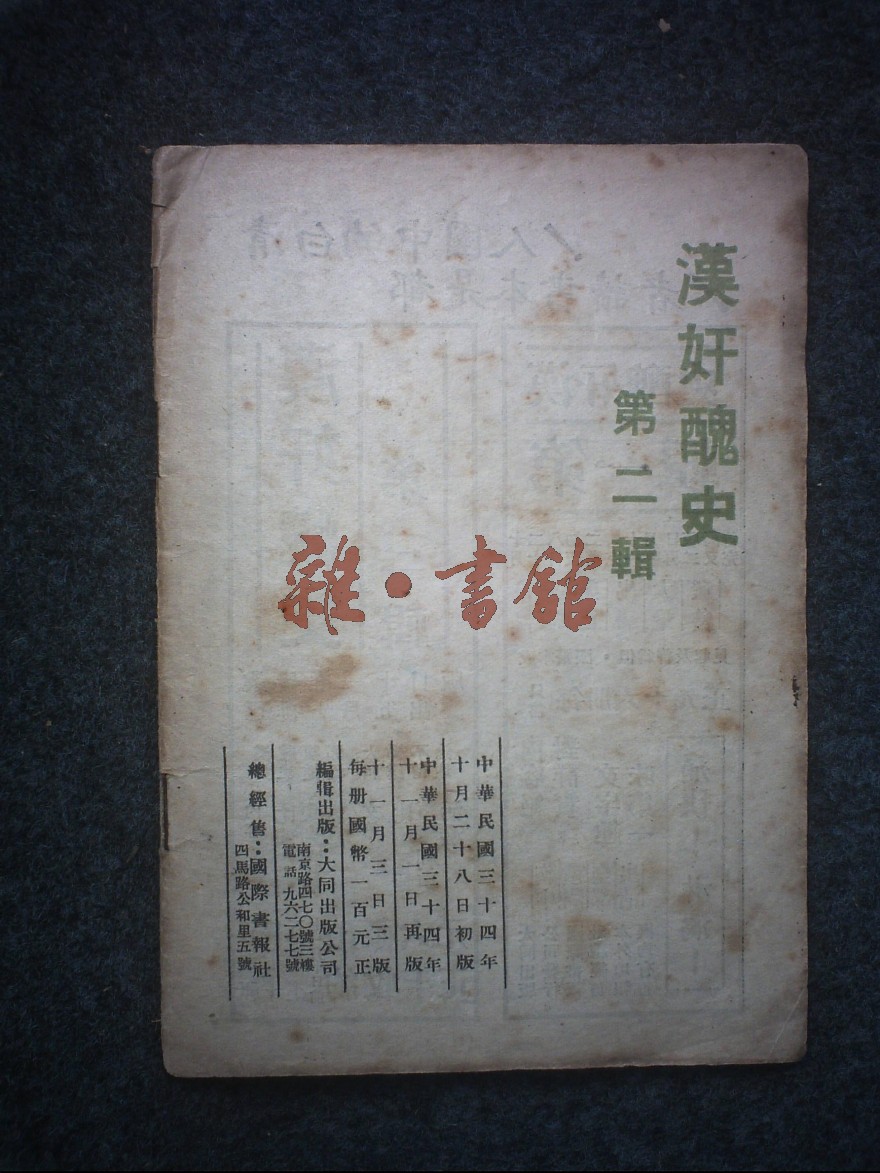 漢奸醜史
第二輯
雜·書館
中華民國三十四年
十月二十八日初版
中華民國三十四年
十一月一日再版
十一月三日三版
每册國幣一百元正
編輯出版：大同出版公司
南京路四七〇號三樓
電話 九六二七七號
總經售：國際書報社
四馬路公和里五號